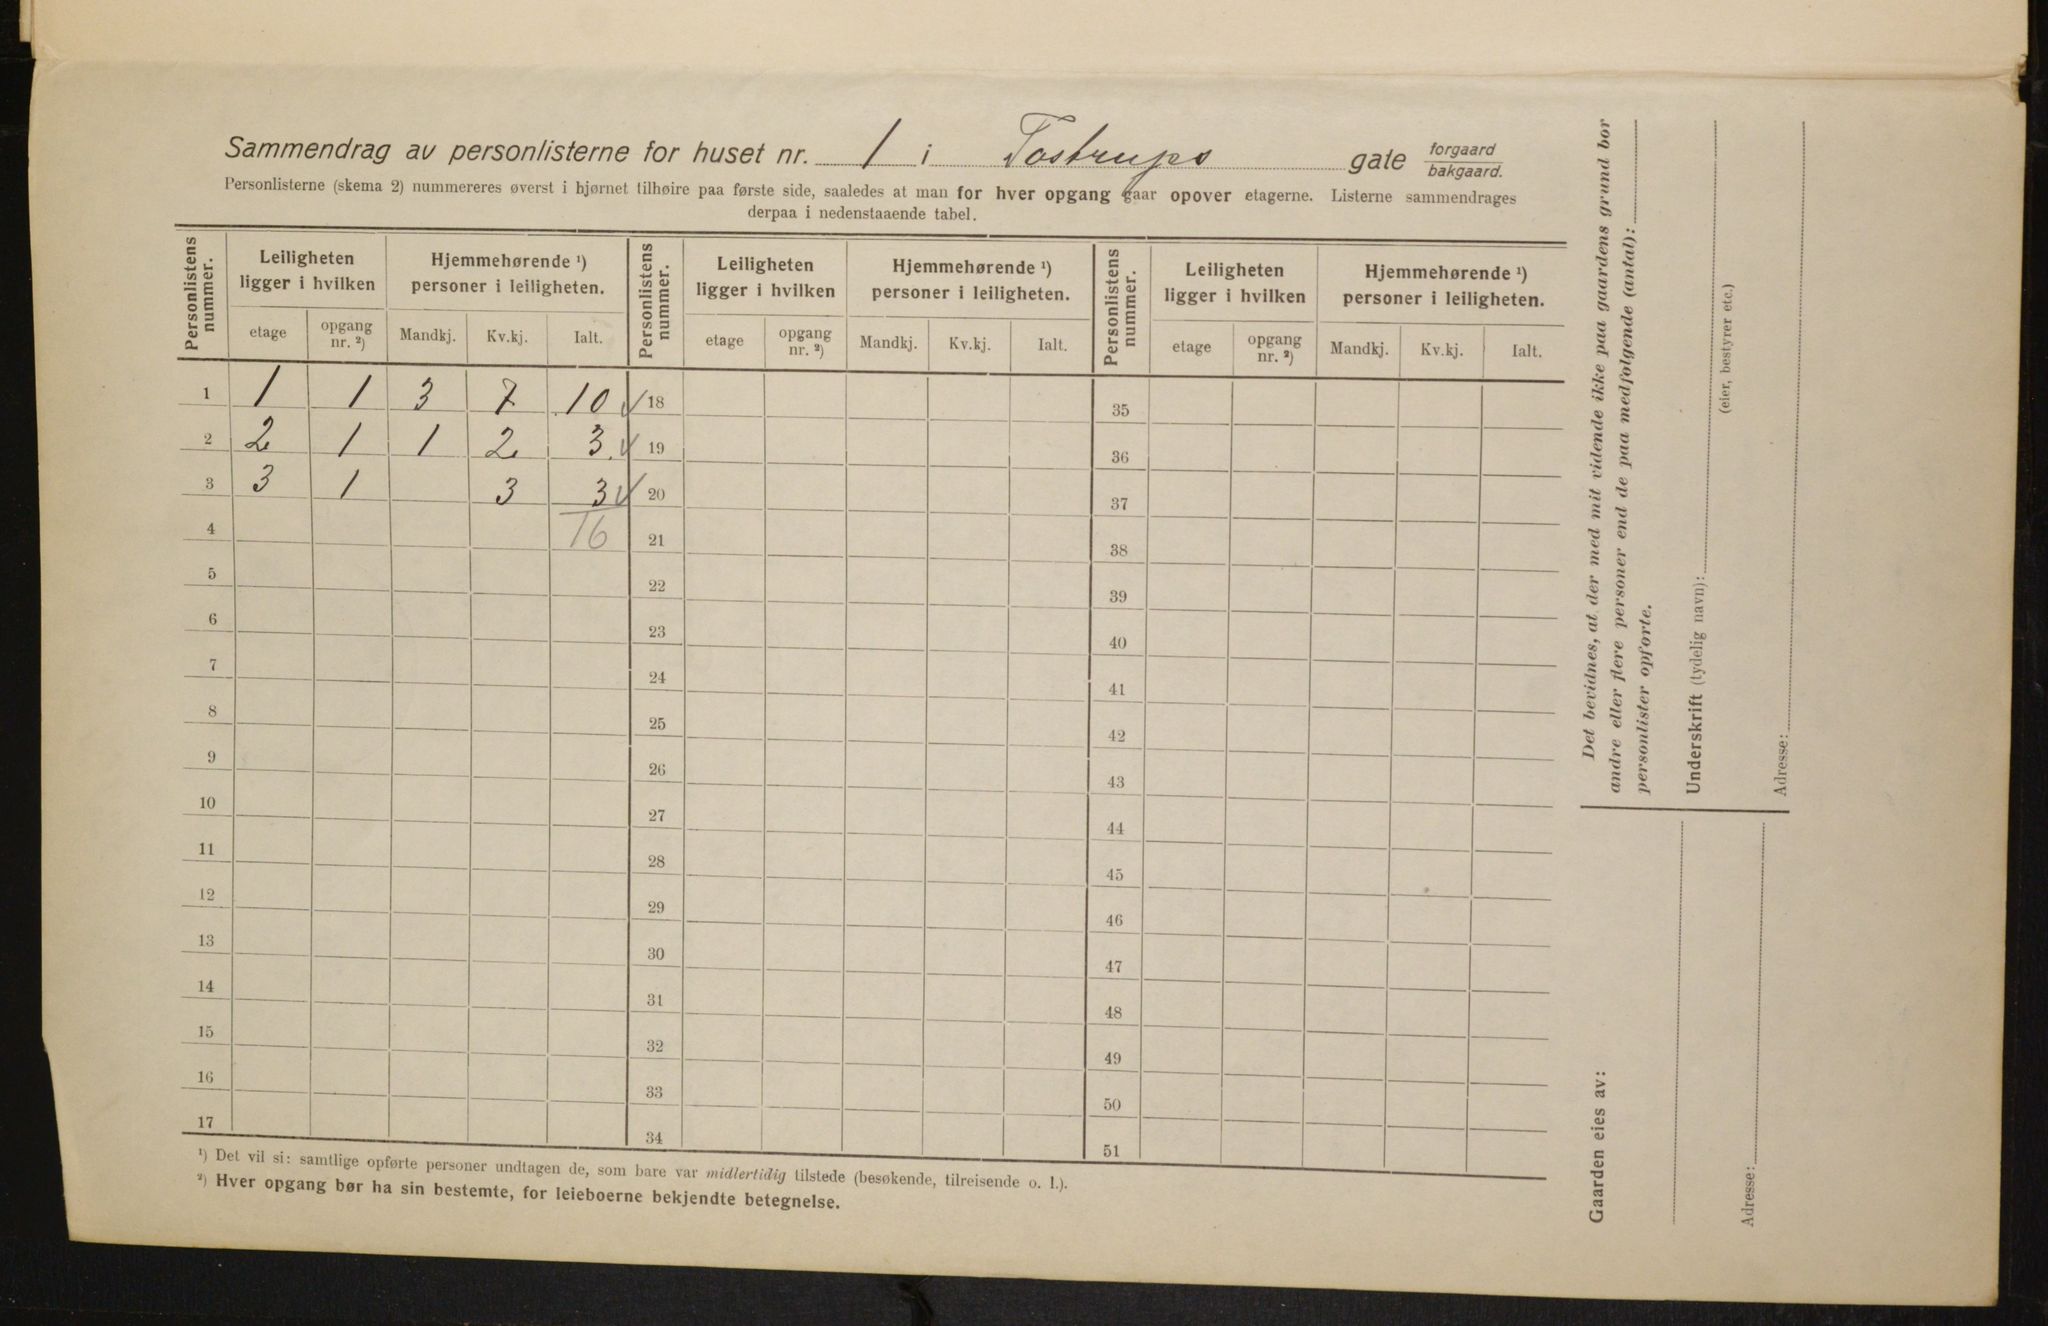 Sammendrag av personlisterne for huset nr. 1 i Tostrups gate forgaard bakgaard.
Personlisterne (skema 2) nummereres øverst i hjørnet tilhøire paa første side, saaledes at man for hver opgang gaar opover etagerne. Listerne sammendrages
derpaa i nedenstaaende tabel.
Personlistens nummer. Leiligheten ligger i hvilken Hjemmehørende ¹) personer i leiligheten. Personlistens nummer. Leiligheten ligger i hvilken Hjemmehørende ¹) personer i leiligheten. Personlistens nummer. Leiligheten ligger i hvilken Hjemmehørende ¹) personer i leiligheten.
etage opgang nr. ²) Mandkj. Kv.kj. Ialt. etage opgang nr. ²) Mandkj. Kv.kj. Ialt. etage opgang nr. ²) Mandkj. Kv.kj. Ialt.
1 1 1 3 7 10 √ 18 35
2 2 1 1 2 3. √ 19 36
3 3 1 3 3 √ 20 37
4 16 21 38
5 22 39
6 23 40
7 24 41
8 25 42
9 26 43
10 27 44
11 28 45
12 29 46
13 30 47
14 31 48
15 32 49
16 33 50
17 34 51
¹) Det vil si: samtlige opførte personer undtagen de, som bare var midlertidig tilstede (besøkende, tilreisende o. l.).
²) Hver opgang bør ha sin bestemte, for leieboerne bekjendte betegnelse.
Det bevidnes, at der med mit vidende ikke paa gaardens grund bor
andre eller flere personer end de paa medfølgende (antal):
personlister opførte.
Underskrift (tydelig navn):
(eier, bestyrer etc.)
Adresse:
Gaarden eies av:
Adresse: